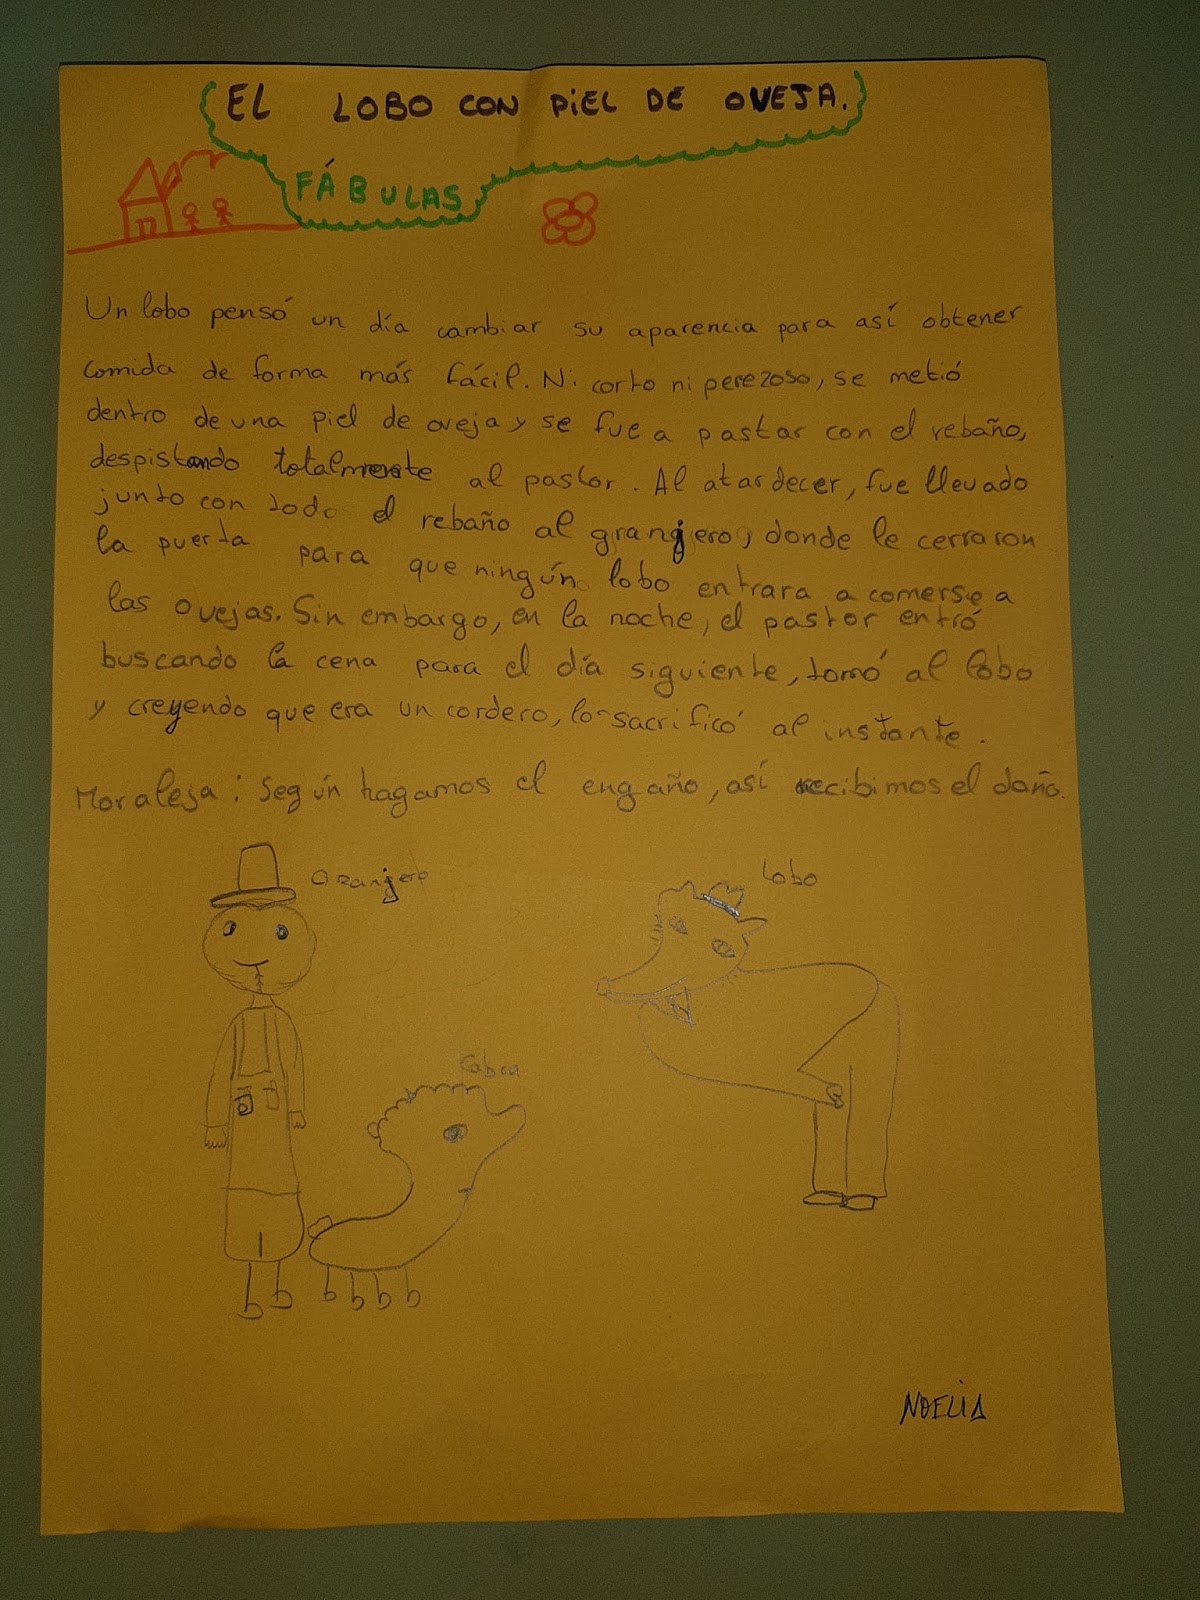 EL LOBO CON PIEL DE OVEJA.
FÁBULAS
Un lobo pensó un día cambiar su aparencia para así obtener
comida de forma más fácil. Ni corto ni perezoso, se metió
dentro de una piel de oveja y se fue a pastar con el rebaño,
despistando totalmente al pastor. Al atardecer, fue llevado
junto con todo el rebaño al granjero, donde le cerraron
la puerta para que ningún lobo entrara a comerse a
las ovejas. Sin embargo, en la noche, el pastor entró
buscando la cena para el día siguiente, tomó al lobo
y creyendo que era un cordero, lo sacrificó al instante.
Moraleja: Según hagamos el engaño, así recibimos el daño.
Granjero
Lobo
Cabra
NOELIA